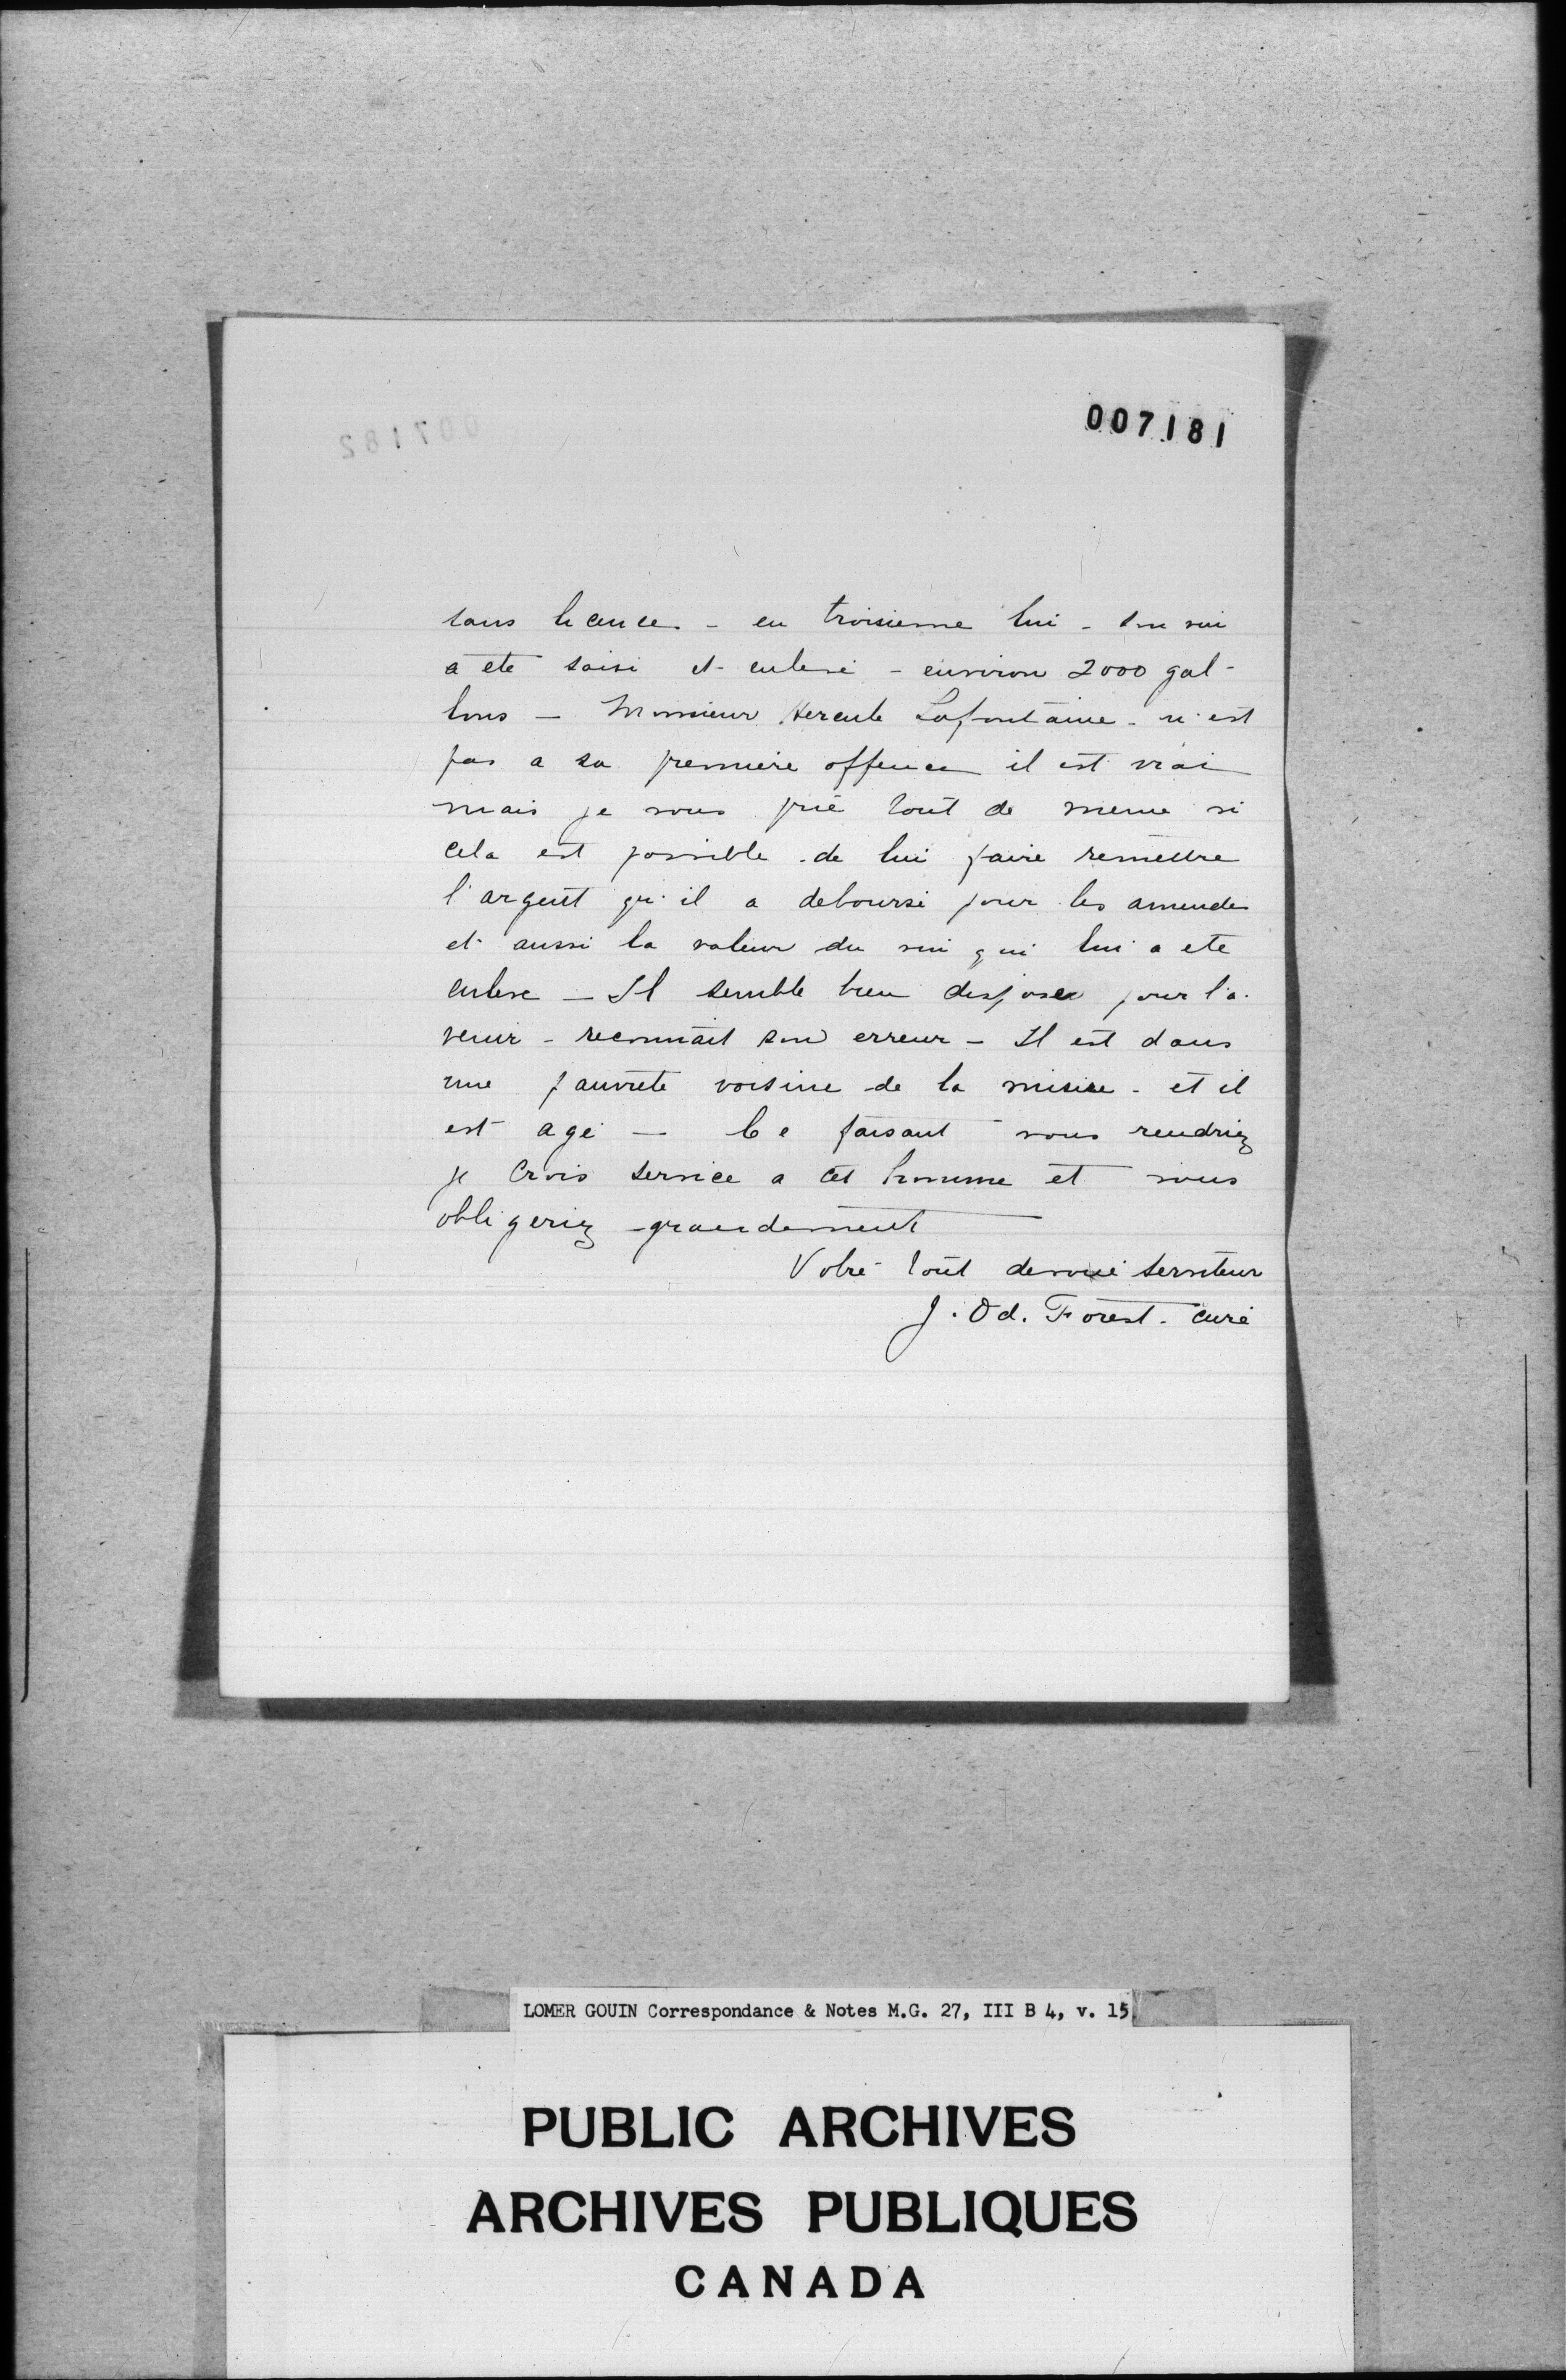 007181
007182
sans licence - en troisieme lui - son vin
a ete saisi et enlevé - environ 2000 gal-
lons - Monsieur Hercule Lafontaine - n'est
pas a sa premiere offence il est vrai
mais je vous prie tout de meme si
cela est possible de lui faire remettre
l'argent qu'il a deboursé pour les amendes
et aussi la valeur du vin qui lui a ete
enleve - Il semble bien disposer pour l'a-
venir - reconnait son erreur - Il est dans
une pauvrete voisine de la misère - et il
est agé - Ce faisant vous rendriez
je crois service a cet homme et vous
obligeriez grandement
Votre tout devoué serviteur
J. Od. Forest - curé
LOMER GOUIN Correspondance & Notes M.G. 27, III B 4, v. 15
PUBLIC ARCHIVES
ARCHIVES PUBLIQUES
CANADA